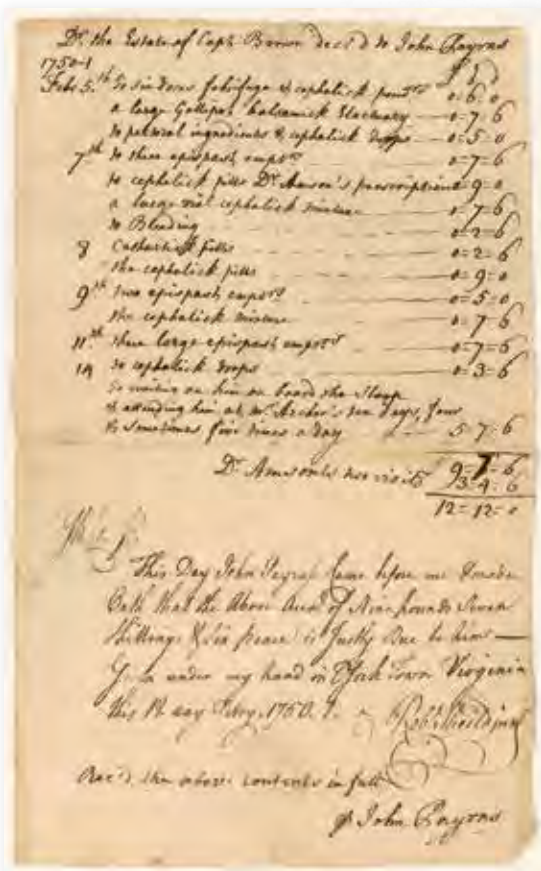 Dr. the Estate of Capt. Brown dec'd to John Payras
1750-1 £ s d
Feb: 5.th To six doses febrifuge & cephalick powdrs 0=6=0
a large Gallipot balsamick Electuary 0=7=6
to pectoral ingredients & cephalick drops 0=5=0
7th to three epispastick 0=7=6
to cephalick pills Dr. prescription 0=9=0
a large vial cephalick mixture 0=7=6
to Bleeding 0=2=6
8 Cathartick pills 0=2=6
the cephalick pills 0=9=0
9th two epispastick 0=5=0
the cephalick mixture 0=7=6
11th three large epispastick 0=7=6
14 to cephalick drops 0=3=6
to waiting on him on board the Sloop
& attending him at Mr. Archer's ten days, four
& sometimes five times a day 5=7=6
9=7=6
Dr. two visits 3=4=6
12=12=0
This Day John Came before me & made
Oath that the Above Acct. of Nine pounds Seven
Shillings & Six pence is Justly Due to him —
Given under my hand in York Town Virginia
this day 1750.1.
Rec'd the above contents in full
pr John Payras